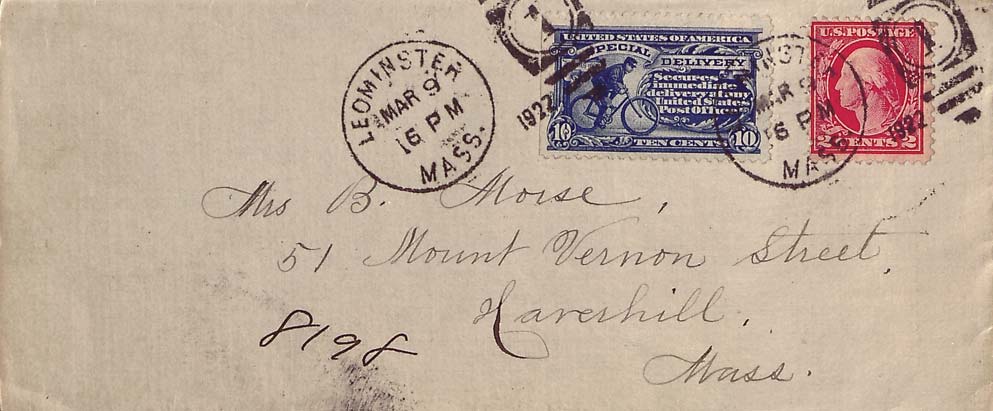 LEOMINSTER
MAR 9
6 PM
MASS.
1922
1
UNITED STATES OF AMERICA
SPECIAL DELIVERY
Secures
immediate
delivery at any
United States
Post Office
10 TEN CENTS 10
MAR 9
6 PM
MASS.
1922
U.S. POSTAGE
2 CENTS 2
Mrs B. Morse,
51 Mount Vernon Street,
Haverhill,
Mass.
8198